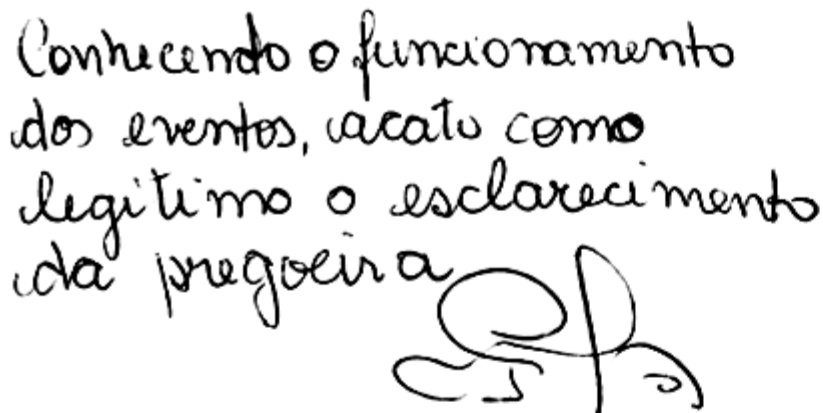 Conhecendo o funcionamento
dos eventos, acato como
legitimo o esclarecimento
da pregoeira